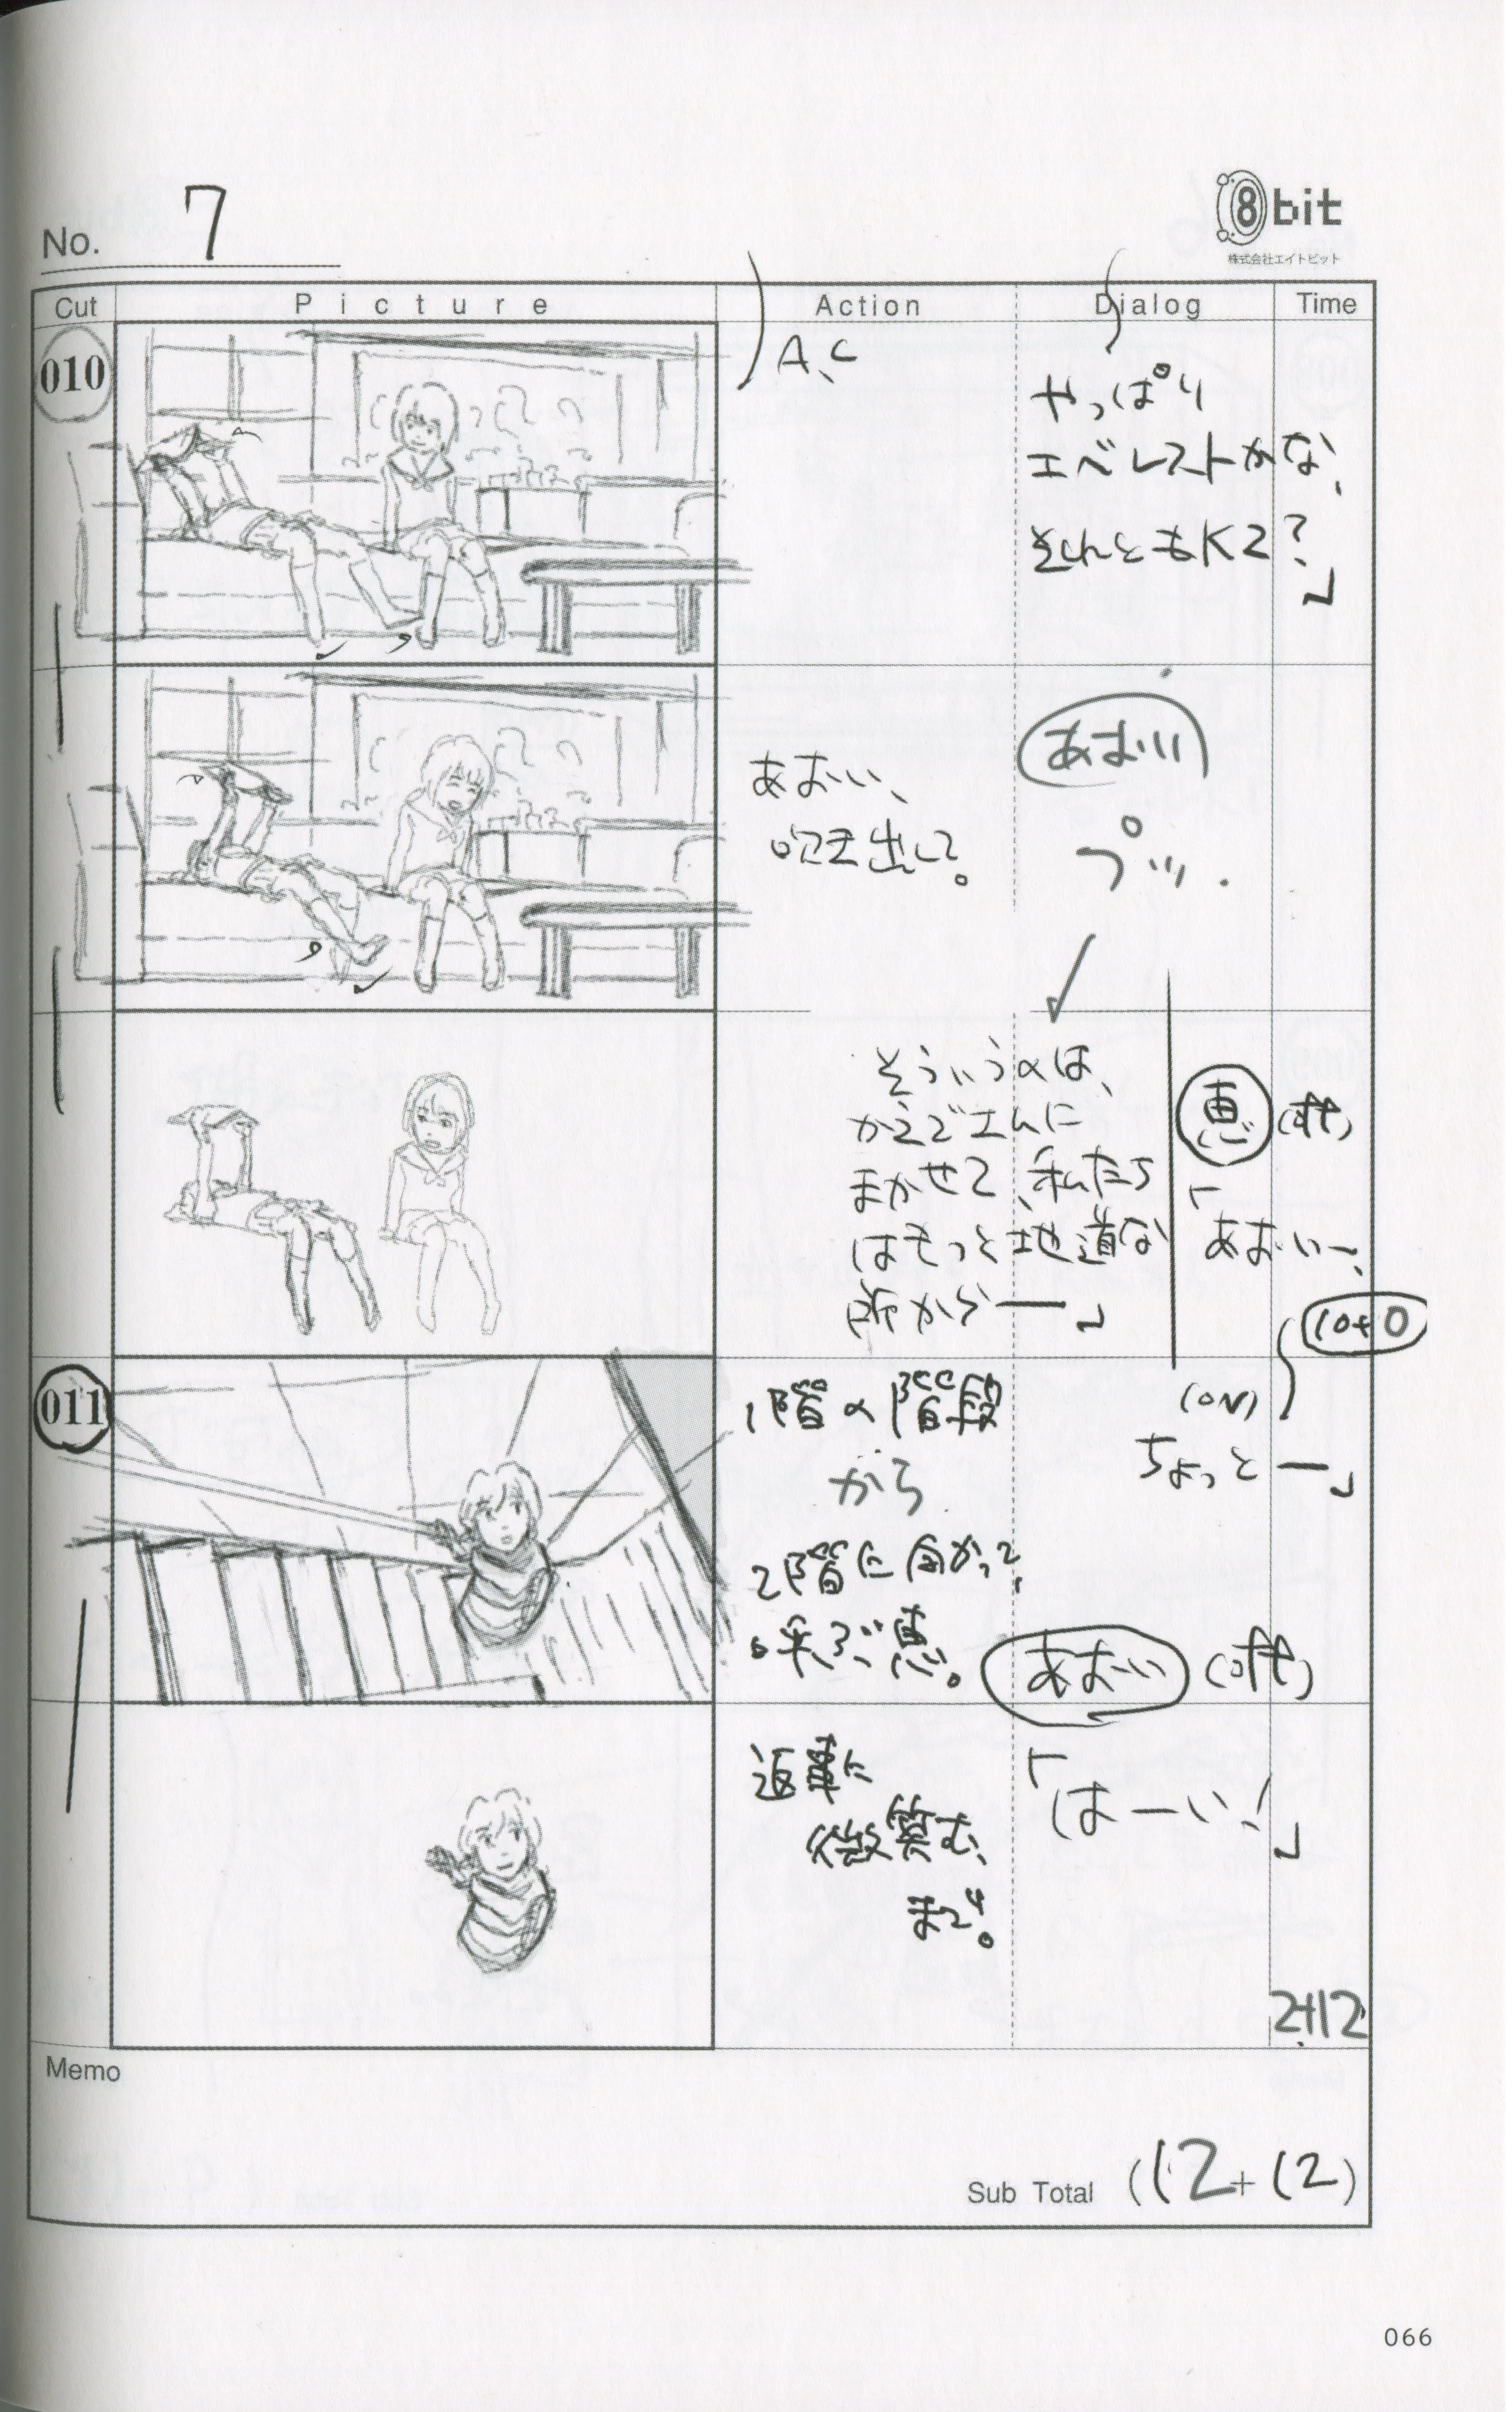 No. 7
8bit
株式会社エイトビット
Cut Picture Action Dialog Time
010
A.C
やっぱり
エベレストかな、
それともK2?」
あおい、
吹き出して。
あおい
プッ.
そういうのは、
かえでさんに
まかせて、私たち
はもっと地道な
所からー」
恵 (off)
「あおいー、
10+0
011
1階の階段
から
2階に向かって、
呼ぶ恵。
(ON)
ちょっとー」
あおい (off)
「はーい!」
返事に
微笑む、
まで。
2+12
Memo
Sub Total (12+12)
066